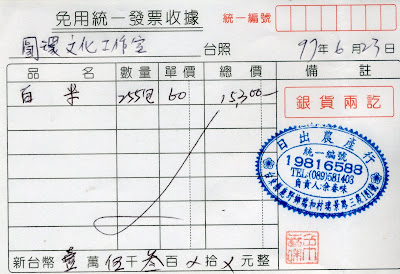 免用統一發票收據
統一編號
圓環文化工作室 台照 97年6月23日
品名 數量 單價 總價 備註
白米 255包 60 15,300
銀貨兩訖
日出農產行
統一編號
19816588
TEL:(089)581403
負責人:余春味
新台幣壹萬伍千叁百X拾X元整